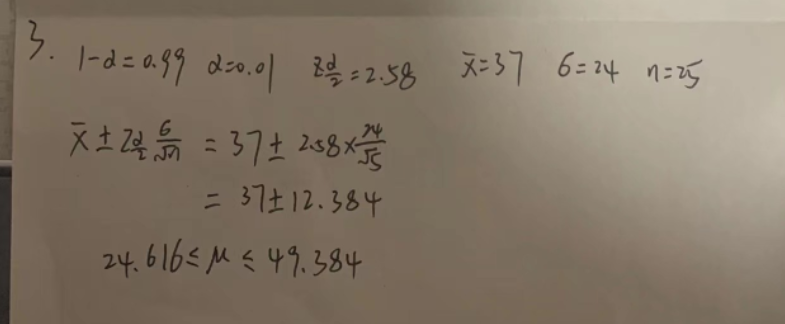 3. 1-α=0.99 α=0.01 Zα/2=2.58 x̄=37 σ=24 n=25
x̄±Zα/2 σ/√n = 37± 2.58×24/√5
= 37±12.384
24.616≤ μ ≤ 49.384